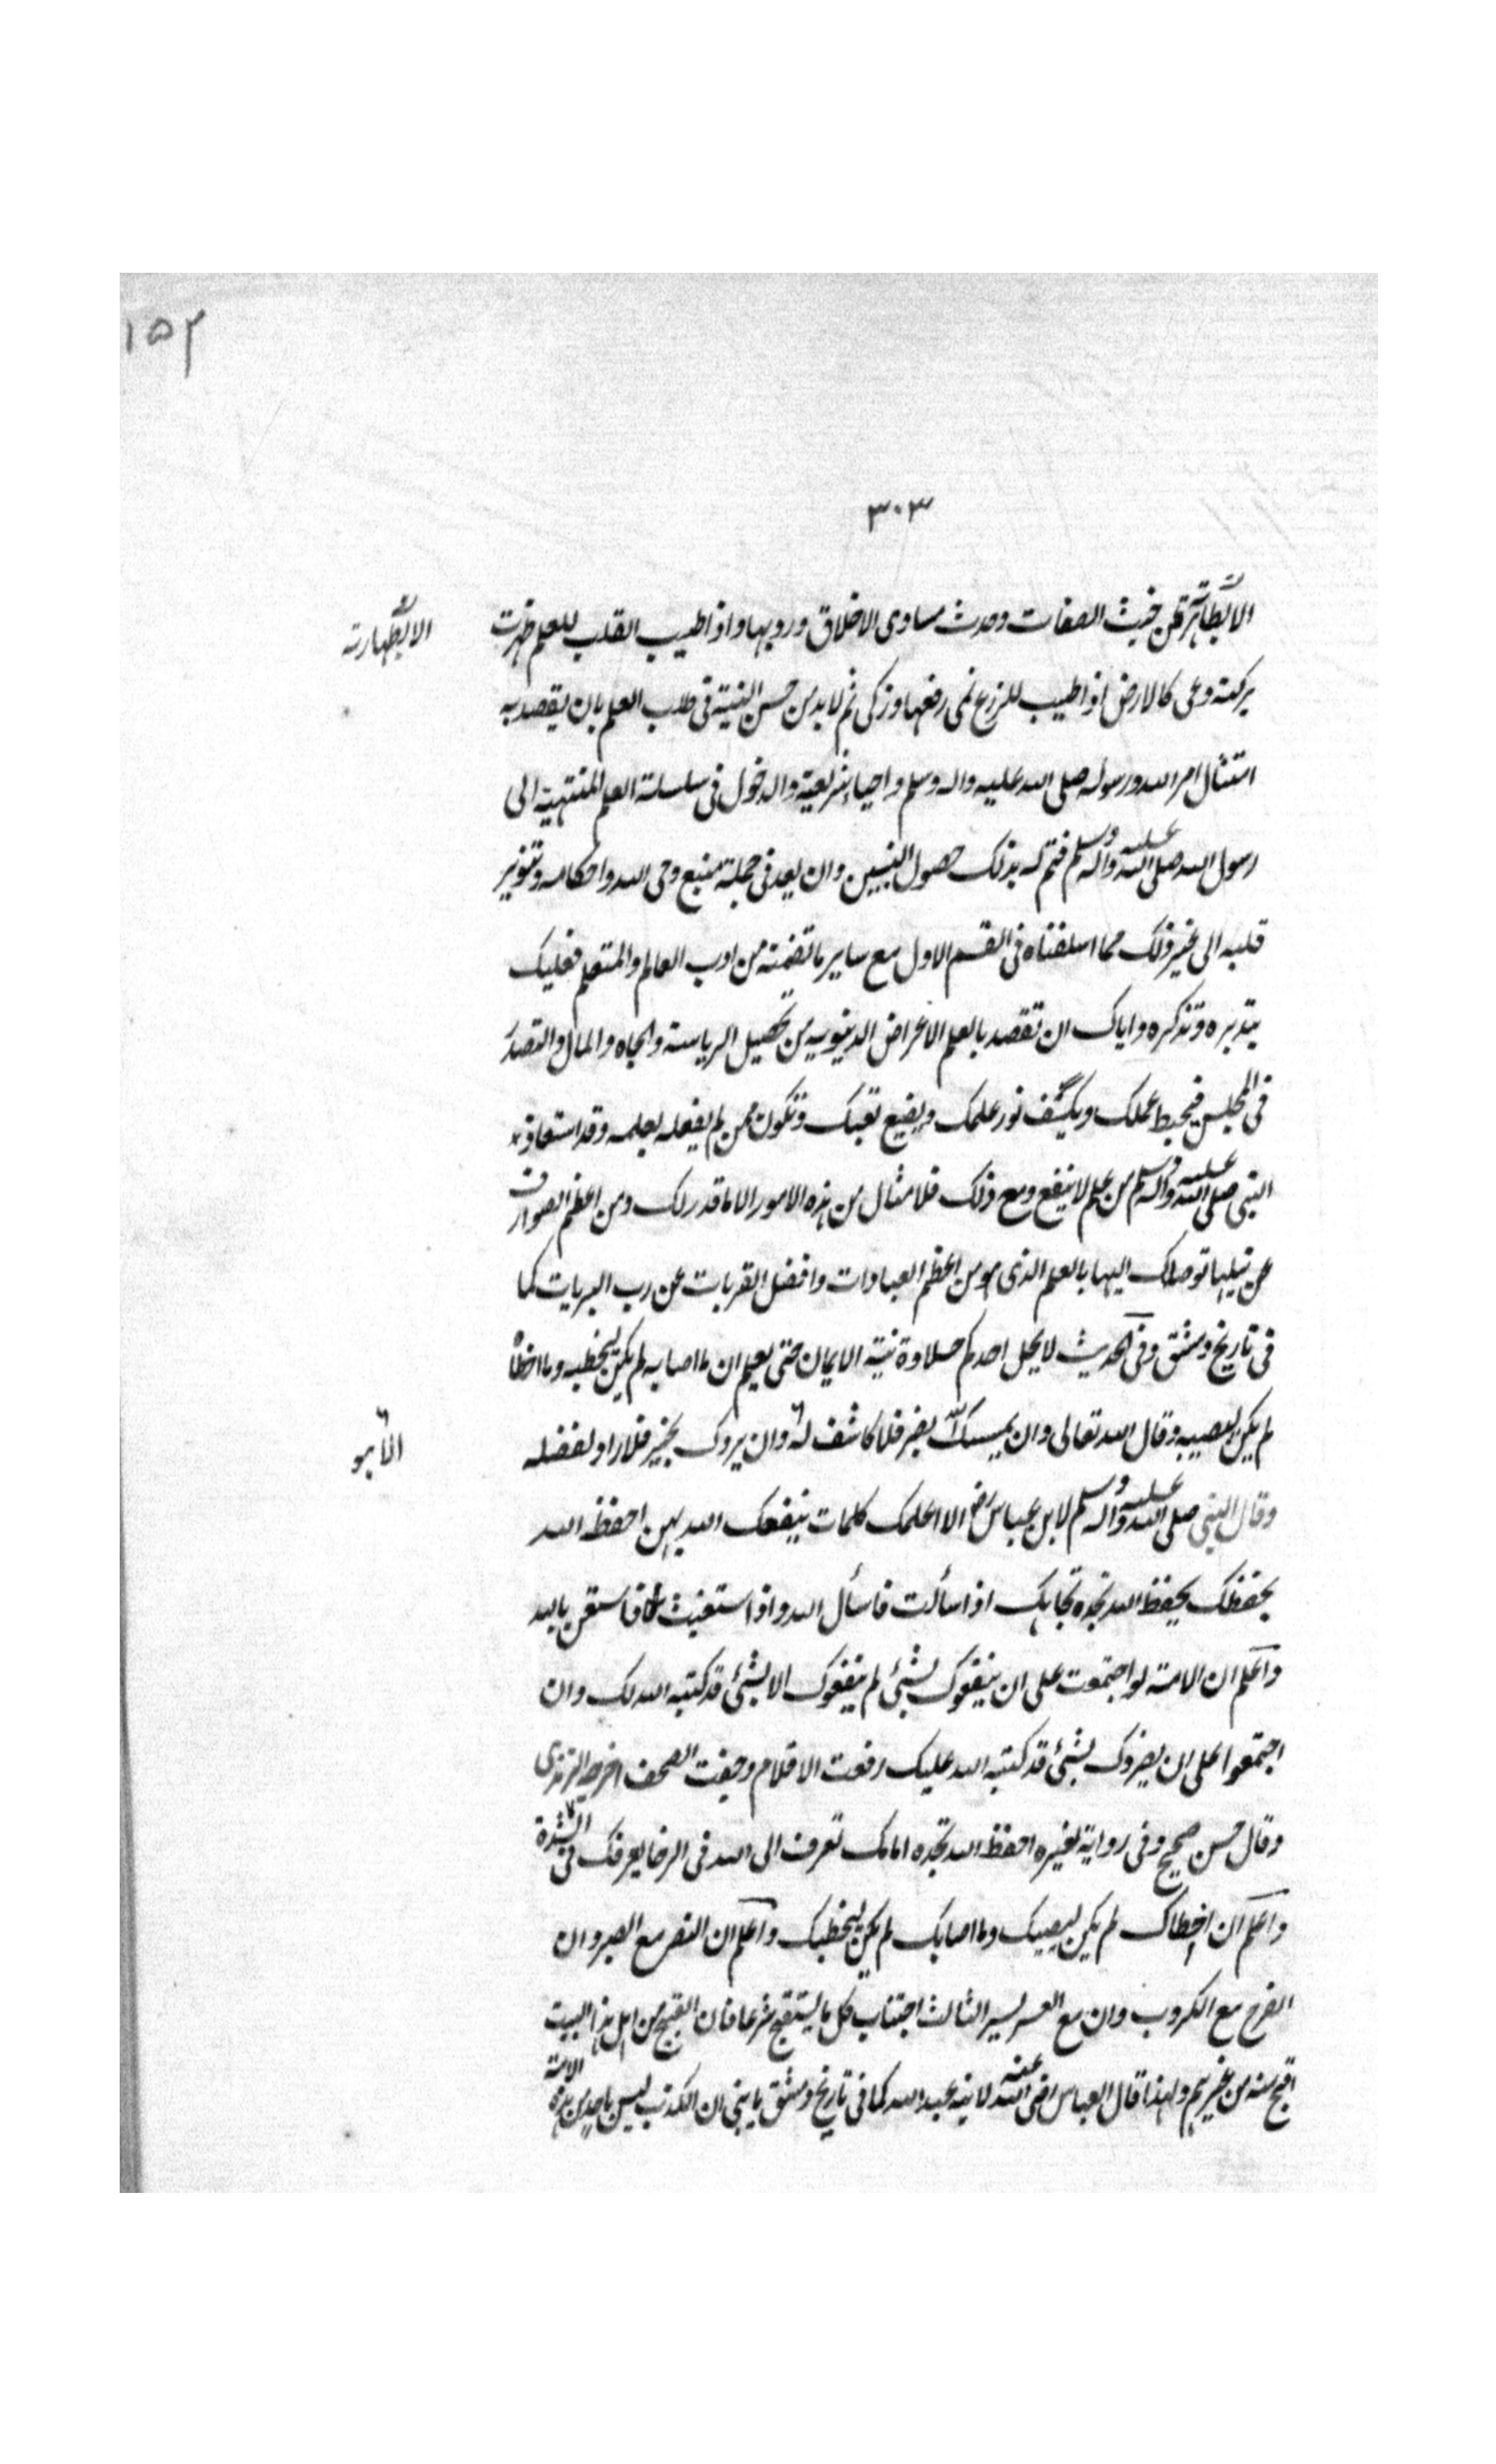 ١٥٢
٣٠٣
الا بطهارته عن خبث الصفات وحدث مساوى الاخلاق ورديها واذا طيب القلب للعلم ظهرت
الا بطهارته
بركته وعى كالارض اذا طيب للزرع نمى رفعها وزكى ثم لا بد من حسن النية فى طلب العلم بان يقصد به
امتثال امر الله ورسوله صلى الله عليه واله وسلم واحياء شريعته والدخول فى سلسلة العلم المنتهية الى
رسول الله صلى الله عليه واله وسلم فتم له بذلك حصول النبيين وان يعد فى جملة منبع وحى الله واحكامه وتنوير
قلبه الى غير ذلك مما اسلفناه فى القسم الاول مع ساير ما تضمنه من ادب العالم والمتعلم فعليك
بتدبره وتذكره واياك ان تقصد بالعلم الاغراض الدنيويه من تحصيل الرياسة والجاه والمال والتصدر
فى المجلس فيحبط عملك ويكشف نور علمك ويضيع تعبك وتكون ممن لم يفعله بعلمه وقد استعاذ
النبى صلى الله عليه واله وسلم من علم لا ينفع ومع ذلك فلا مثال من هذه الامور الا ما قدر لك ومن اعظم الصوارف
عن نيلها توصلك اليها بالعلم الذى هو من اعظم العبادات وافضل القربات عن رب البريات كما
فى تاريخ دمشق وفى الحديث لا يحل احدكم حلاوة نية الايمان حتى يعلم ان ما اصابه لم يكن ليخطيه وما اخطأ
لم يكن ليصيبه وقال الله تعالى وان يمسسك الله بضر فلا كاشف له وان يردك بخير فلا راد لفضله
الا هو
وقال النبى صلى الله عليه واله وسلم لابن عباس رض الا اعلمك كلمات ينفعك الله بهن احفظ الله
يحفظك يحفظ الله تجده تجاهك اذا سألت فاسأل الله واذا استغيثت فاستعن بالله
واعلم ان الامة لو اجتمعت على ان ينفعوك بشئ لم ينفعوك الا بشئ قد كتبه الله لك وان
اجتمعوا على ان يضروك بشئ قد كتبه الله عليك رفعت الاقلام وجفت الصحف اخرجه الترمذى
وقال حسن صحيح وفى رواية لغيره احفظ الله تجده امامك تعرف الى الله فى الرخا يعرفك فى الشدة
واعلم ان ما اخطاك لم يكن ليصيبك وما اصابك لم يكن ليخطيك واعلم ان النصر مع الصبر وان
الفرج مع الكروب وان مع العسر يسر الثالث اجتناب كل ما يستقبح شرعا فان القبيح من اهل هذا البيت
اقبح منه من غيرهم ولهذا قال العباس رضى الله عنه لابنه عبد الله كما فى تاريخ دمشق يا بنى ان الكذب ليس باحد من هذه الامة